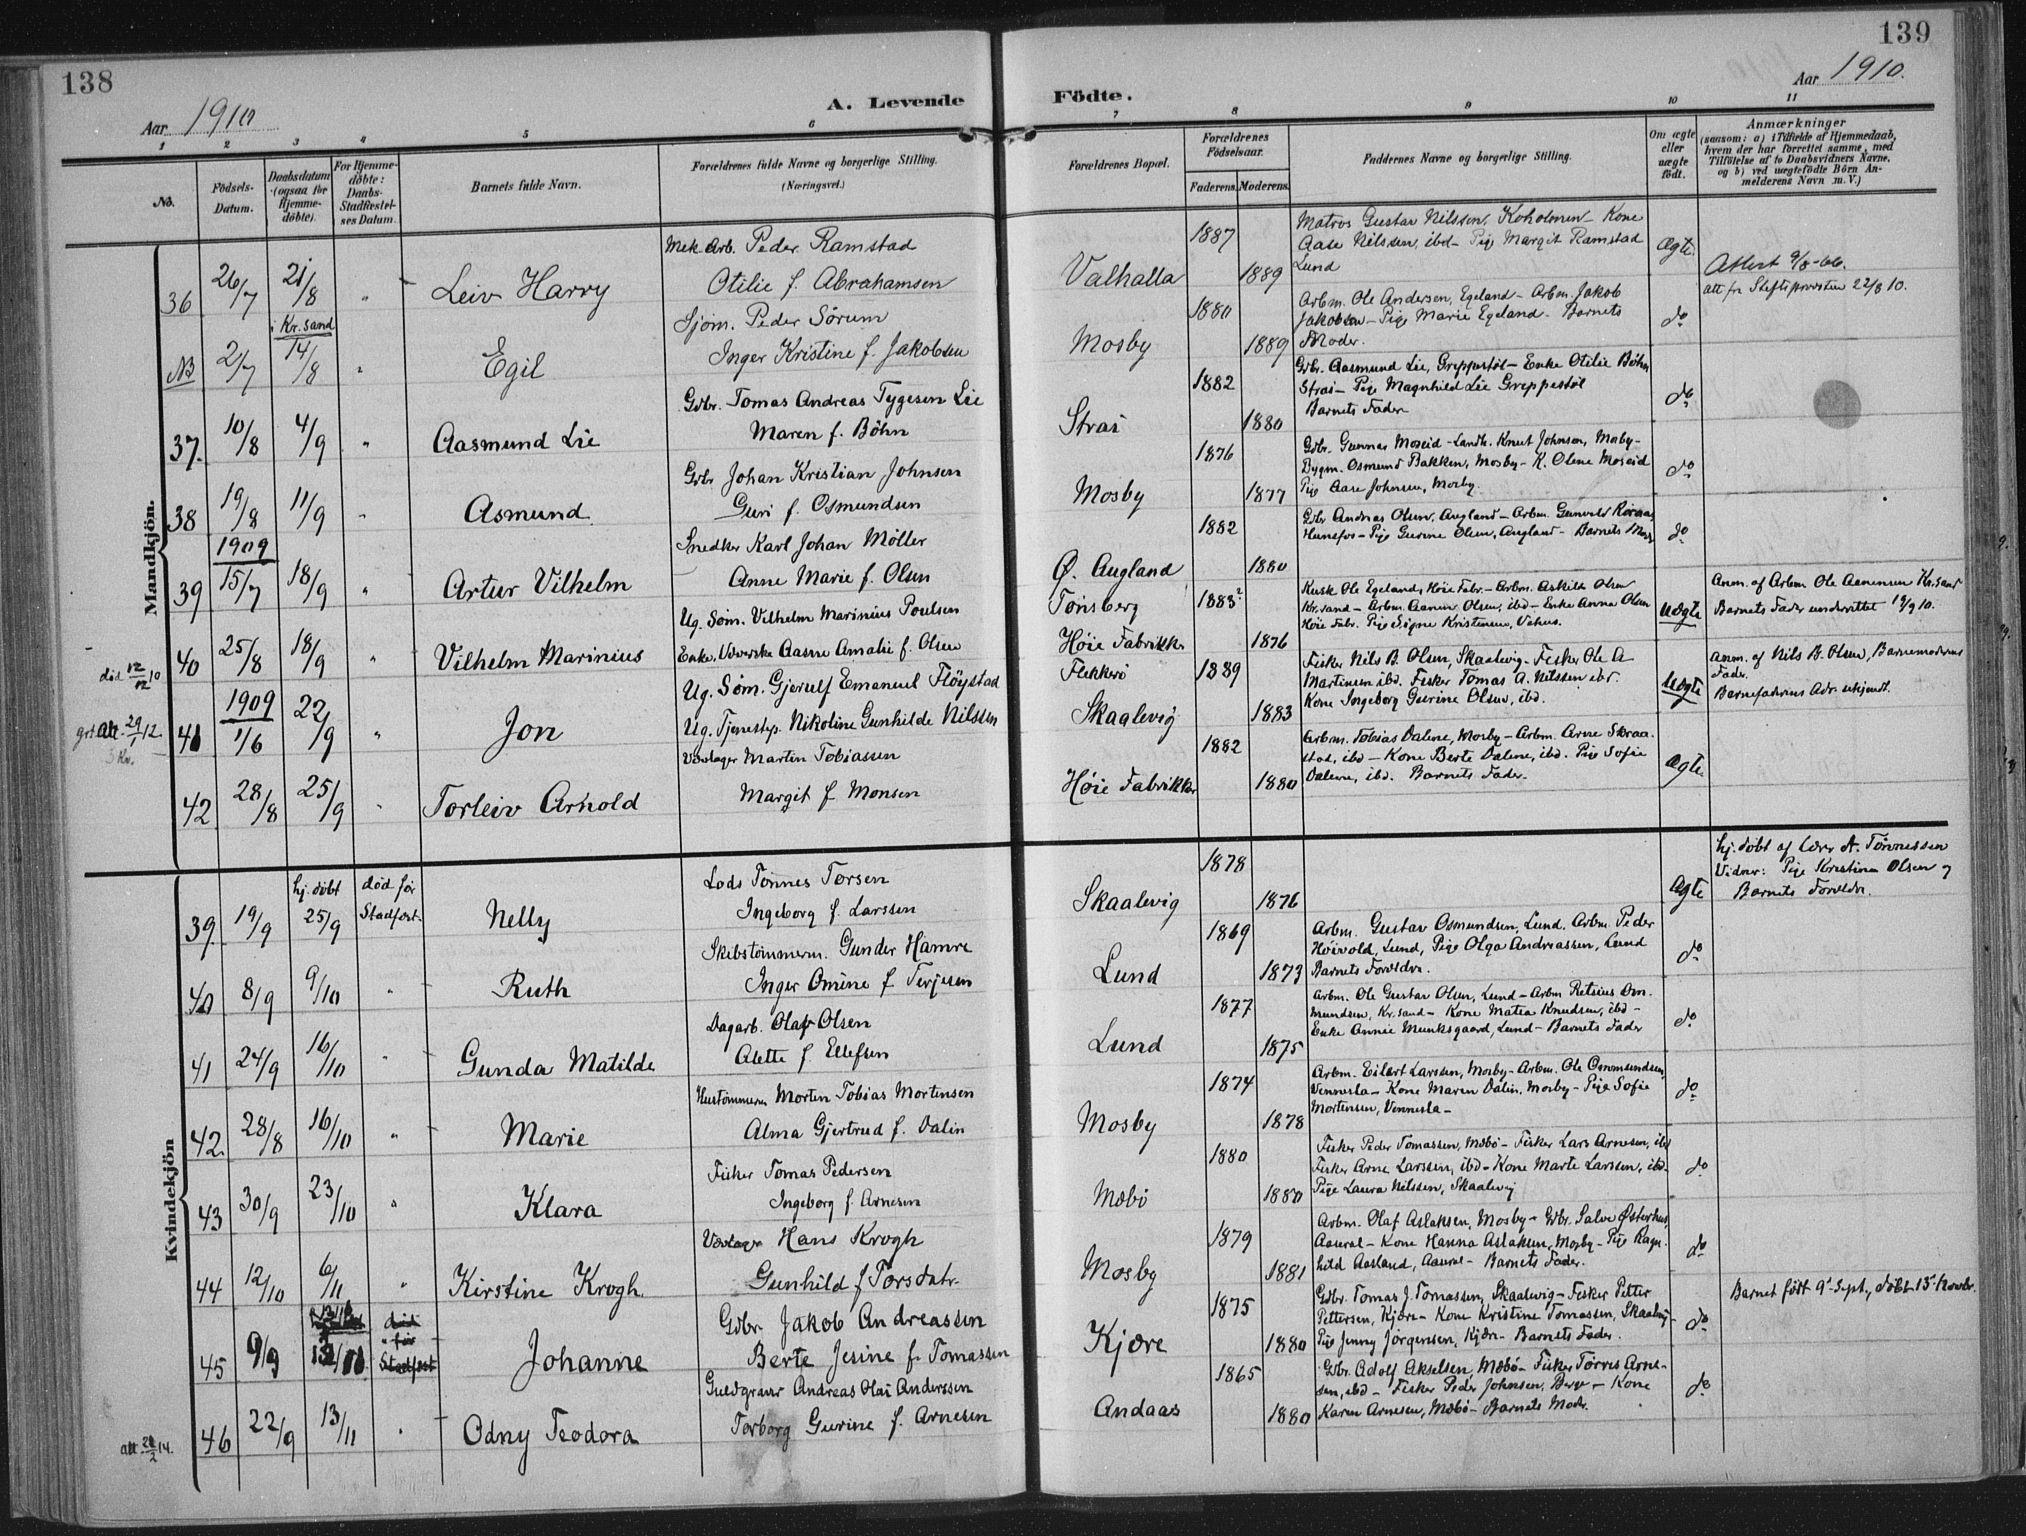 138
139
Aar 1910
A. Levende
Födte.
Aar 1910.
1 2 3 4 5 6 7 8 9 10 11
No.
Födsels-Datum.
Daabsdatum (ogsaa for Hjemmedöbte).
For Hjemmedöbte: Daabs-Stadfæstelses Datum.
Barnets fulde Navn.
Forældrenes fulde Navne og borgerlige Stilling.
(Næringsvei.)
Forældrenes Bopæl.
Forældrenes Födselsaar.
Faderens. Moderens.
Faddernes Navne og borgerlige Stilling.
Om ægte eller uægte födt.
Anmærkninger
(saasom: a) i Tilfælde af Hjemmedaab, hvem der har forrettet samme, med Tilföielse af to Daabsvidners Navne, og b) ved uægtefödte Börn Anmelderens Navn m. V.)
Mandkjön.
36 26/7 21/8 " Leiv Harry
Mek. Arb. Peder Ramstad
Otilie f. Abrahamsen
Valhalla 1887 1889
Matros Gustav Nilssen, Koholmen - Kone
Aase Nilssen, ibd - Pige Margit Ramstad
Lund
Ægte
Attest 9/8-66.
att fra Stiftsprovstien 22/8 10.
NB 2/7 i Kr.sand 14/8 " Egil
Sjøm. Peder Sörum
Inger Kristine f. Jakobsen
Mosby 1880 1889
Arbm. Ole Andersen, Egeland - Arbm. Jakob
Jakobsen - Pige Marie Egeland - Barnets
Moder.
do
37. 10/8 4/9 " Aasmund Lie
Gdbr. Tomas Andreas Tygesen Lie
Maren f. Böhn
Strai 1882 1880
Gbr. Aasmund Lie, Greppestöl - Enke Otilie Böhn
Strai - Pige Magnhild Lie Greppestöl
Barnets Fader
do
38 19/8 11/9 " Asmund
Gbr Johan Kristian Johnsen
Guri f. Osmundsen
Mosby 1876 1877
Gdbr. Gunnar Moseid - Landh. Knut Johnsen, Mosby -
Bygm. Osmund Bakken, Mosby - K. Olene Moseid
Pige Aase Johnsen, Mosby.
do
39 1909 15/7 18/9 " Artur Vilhelm
Snedker Karl Johan Möller
Anne Marie f. Olsen
Ø. Augland 1882 1880
Gdbr Andreas Olsen, Augland - Arbm. Gunvald
Hunsfos - Pige Gurine Olsen, Augland - Barnets Mor
do
40 25/8 18/9 " Vilhelm Marinius
Ug. Søm. Vilhelm Marinius Poulsen
Enke, Væverske Aasne Amalie f. Olsen
Tönsberg
Høie Fabrikker 1883? 1876
Kusk Ole Egeland, Høie Fabr. - Arbm. Askild Olsen
Kr.sand - Arbm. Aanen Olsen, ibd - Enke Anna Olsen
Høie Fabr. Pige Signe Kristensen, Vehus.
Uægte
Anm. af Arbm Ole Aanensen Kr.sand
Barnets Fader underrettet 19/9 10.
död 12/12 10
41 1909 1/6 22/9 " Jon
Ug. Søm. Gjerulf Emanuel Flöystad
Ug. Tjenestep. Nikoline Gunhilde Nilssen
Flekkerö
Skaalevig 1889 1883
Fisker Nils B. Olsen, Skaalevig - Fisker Ole A
Martinsen ibd. Fisker Tomas A. Nilssen ibd.
Kone Ingeborg Gurine Olsen, ibd.
Uægte
Anm. af Nils B. Olsen, Barnemoderens
Fader.
Barnefaderens Adr. ubekjendt.
att. 29/1 12.
42 28/8 25/9 " Torleiv Arnold
Vævlager Martin Tobiassen
Margit f. Monsen
Høie Fabrikker 1882 1880
Arbm. Tobias Dalene, Mosby - Arbm. Arne Skraa-
stad, ibd - Kone Berte Dalene, ibd. Pige Sofie
Dalene, ibd. Barnets Fader.
Ægte
Kvindekjön
39 19/9 hj. döbt 25/9 död før Stadfæst. Nelly
Lods Tönnes Torsen
Ingeborg f. Larssen
Skaalevig 1878 1876
Ægte
hj. döbt af Lærer A. Tönnessen
Vidner: Pige Kristine Olsen og
Barnets Forældre.
40 8/9 9/10 " Ruth
Skibstömmerm. Gunder Hamre
Inger Omine f. Terjesen
Lund 1869 1873
Arbm. Gustav Osmundsen, Lund. Arbm. Peder
Höivold, Lund, Pige Olga Andreassen, Lund
Barnets Forældre.
do
41 24/9 16/10 " Gunda Matilde
Dagarb. Olaf Olsen
Alette f. Ellefsen
Lund 1877 1875
Arbm. Ole Gustav Olsen, Lund - Arbm Retsius Om-
mundsen, Kr.sand - Kone Matea Knudsen, ibd -
Enke Annie Munksgaard, Lund - Barnets Fader
do
42. 28/8 16/10 " Marie
Hustömmerm Morten Tobias Mortensen
Alma Gjertrud f. Dalin
Mosby 1874 1878
Arbm. Eilert Larssen, Mosby - Arbm. Ole Ommundsen,
Vennesla - Kone Maren Dalin, Mosby - Pige Sofie
Mortensen, Vennesla -
do
43 30/9 23/10 " Klara
Fisker Tomas Pedersen
Ingeborg f. Arnesen
Mæbö 1880 1880
Fisker Peder Tomassen, Mæbö - Fisker Lars Arnesen, ibd
Fisker Arne Larssen, ibd - Kone Marte Larssen, ibd.
Pige Laura Nilssen, Skaalevig
do
44 12/10 6/11 " Kirstine Krogh.
Vævlager Hans Krogh
Gunhild f Torsdatr.
Mosby 1879 1881
Arbm. Olaf Aslaksen, Mosby - Gdbr. Salve Østerhus,
Aaseral - Kone Hanna Aslaksen, Mosby - Pige Ragn-
hild Aasland, Aaseral - Barnets Fader.
do
45 9/9 Johanne
Gdbr Jakob Andreassen
Berte Jesine f. Tomassen
Kjære 1875 1880
Gdbr. Tomas J. Tomassen, Skaalevig - Fisker Petter
Pettersen, Kjære - Kone Kristine Tomassen, Skaalevig -
Pige Jenny Jörgensen, Kjære - Barnets Fader.
do
Barnet födt 9d Sept, döbt 13d Novbr.
46 22/9 13/11 " Odny Teodora
Guldgraver Andreas Olai Anderssen
Torborg Gurine f. Arnesen
Andaas 1865 1880
Gdbr. Adolf Akselsen, Mæbö - Fisker Törres Arne-
sen, ibd - Fisker Peder Johnsen, Berge - Kone
Karen Arnesen, Mæbö - Barnets Moder.
do
att 28/2 14.